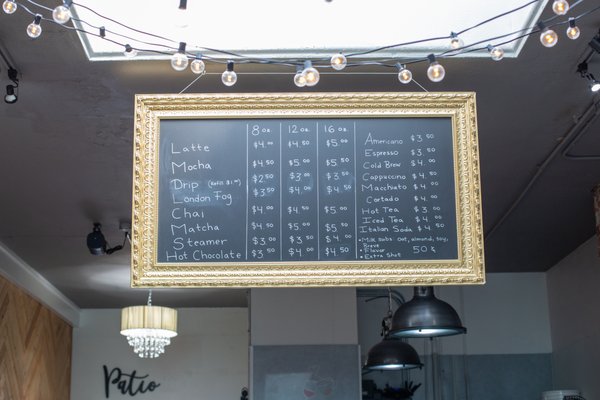 8 oz. 12 oz. 16 oz.
Latte $4.00 $4.50 $5.00
Mocha $4.50 $5.00 $5.50
Drip (Refill $1.00) $2.50 $3.00 $3.50
London Fog $3.50 $4.00 $4.50
Chai $4.00 $4.50 $5.00
Matcha $4.50 $5.00 $5.50
Steamer $3.00 $3.50 $4.00
Hot Chocolate $3.50 $4.00 $4.50
Americano $3.50
Espresso $3.50
Cold Brew $4.00
Cappuccino $4.00
Macchiato $4.00
Cortado $4.00
Hot Tea $3.00
Iced Tea $4.00
Italian Soda $4.50
• Milk Subs oat, almond, soy,
Breve
• Flavor 50¢
• Extra Shot
Patio